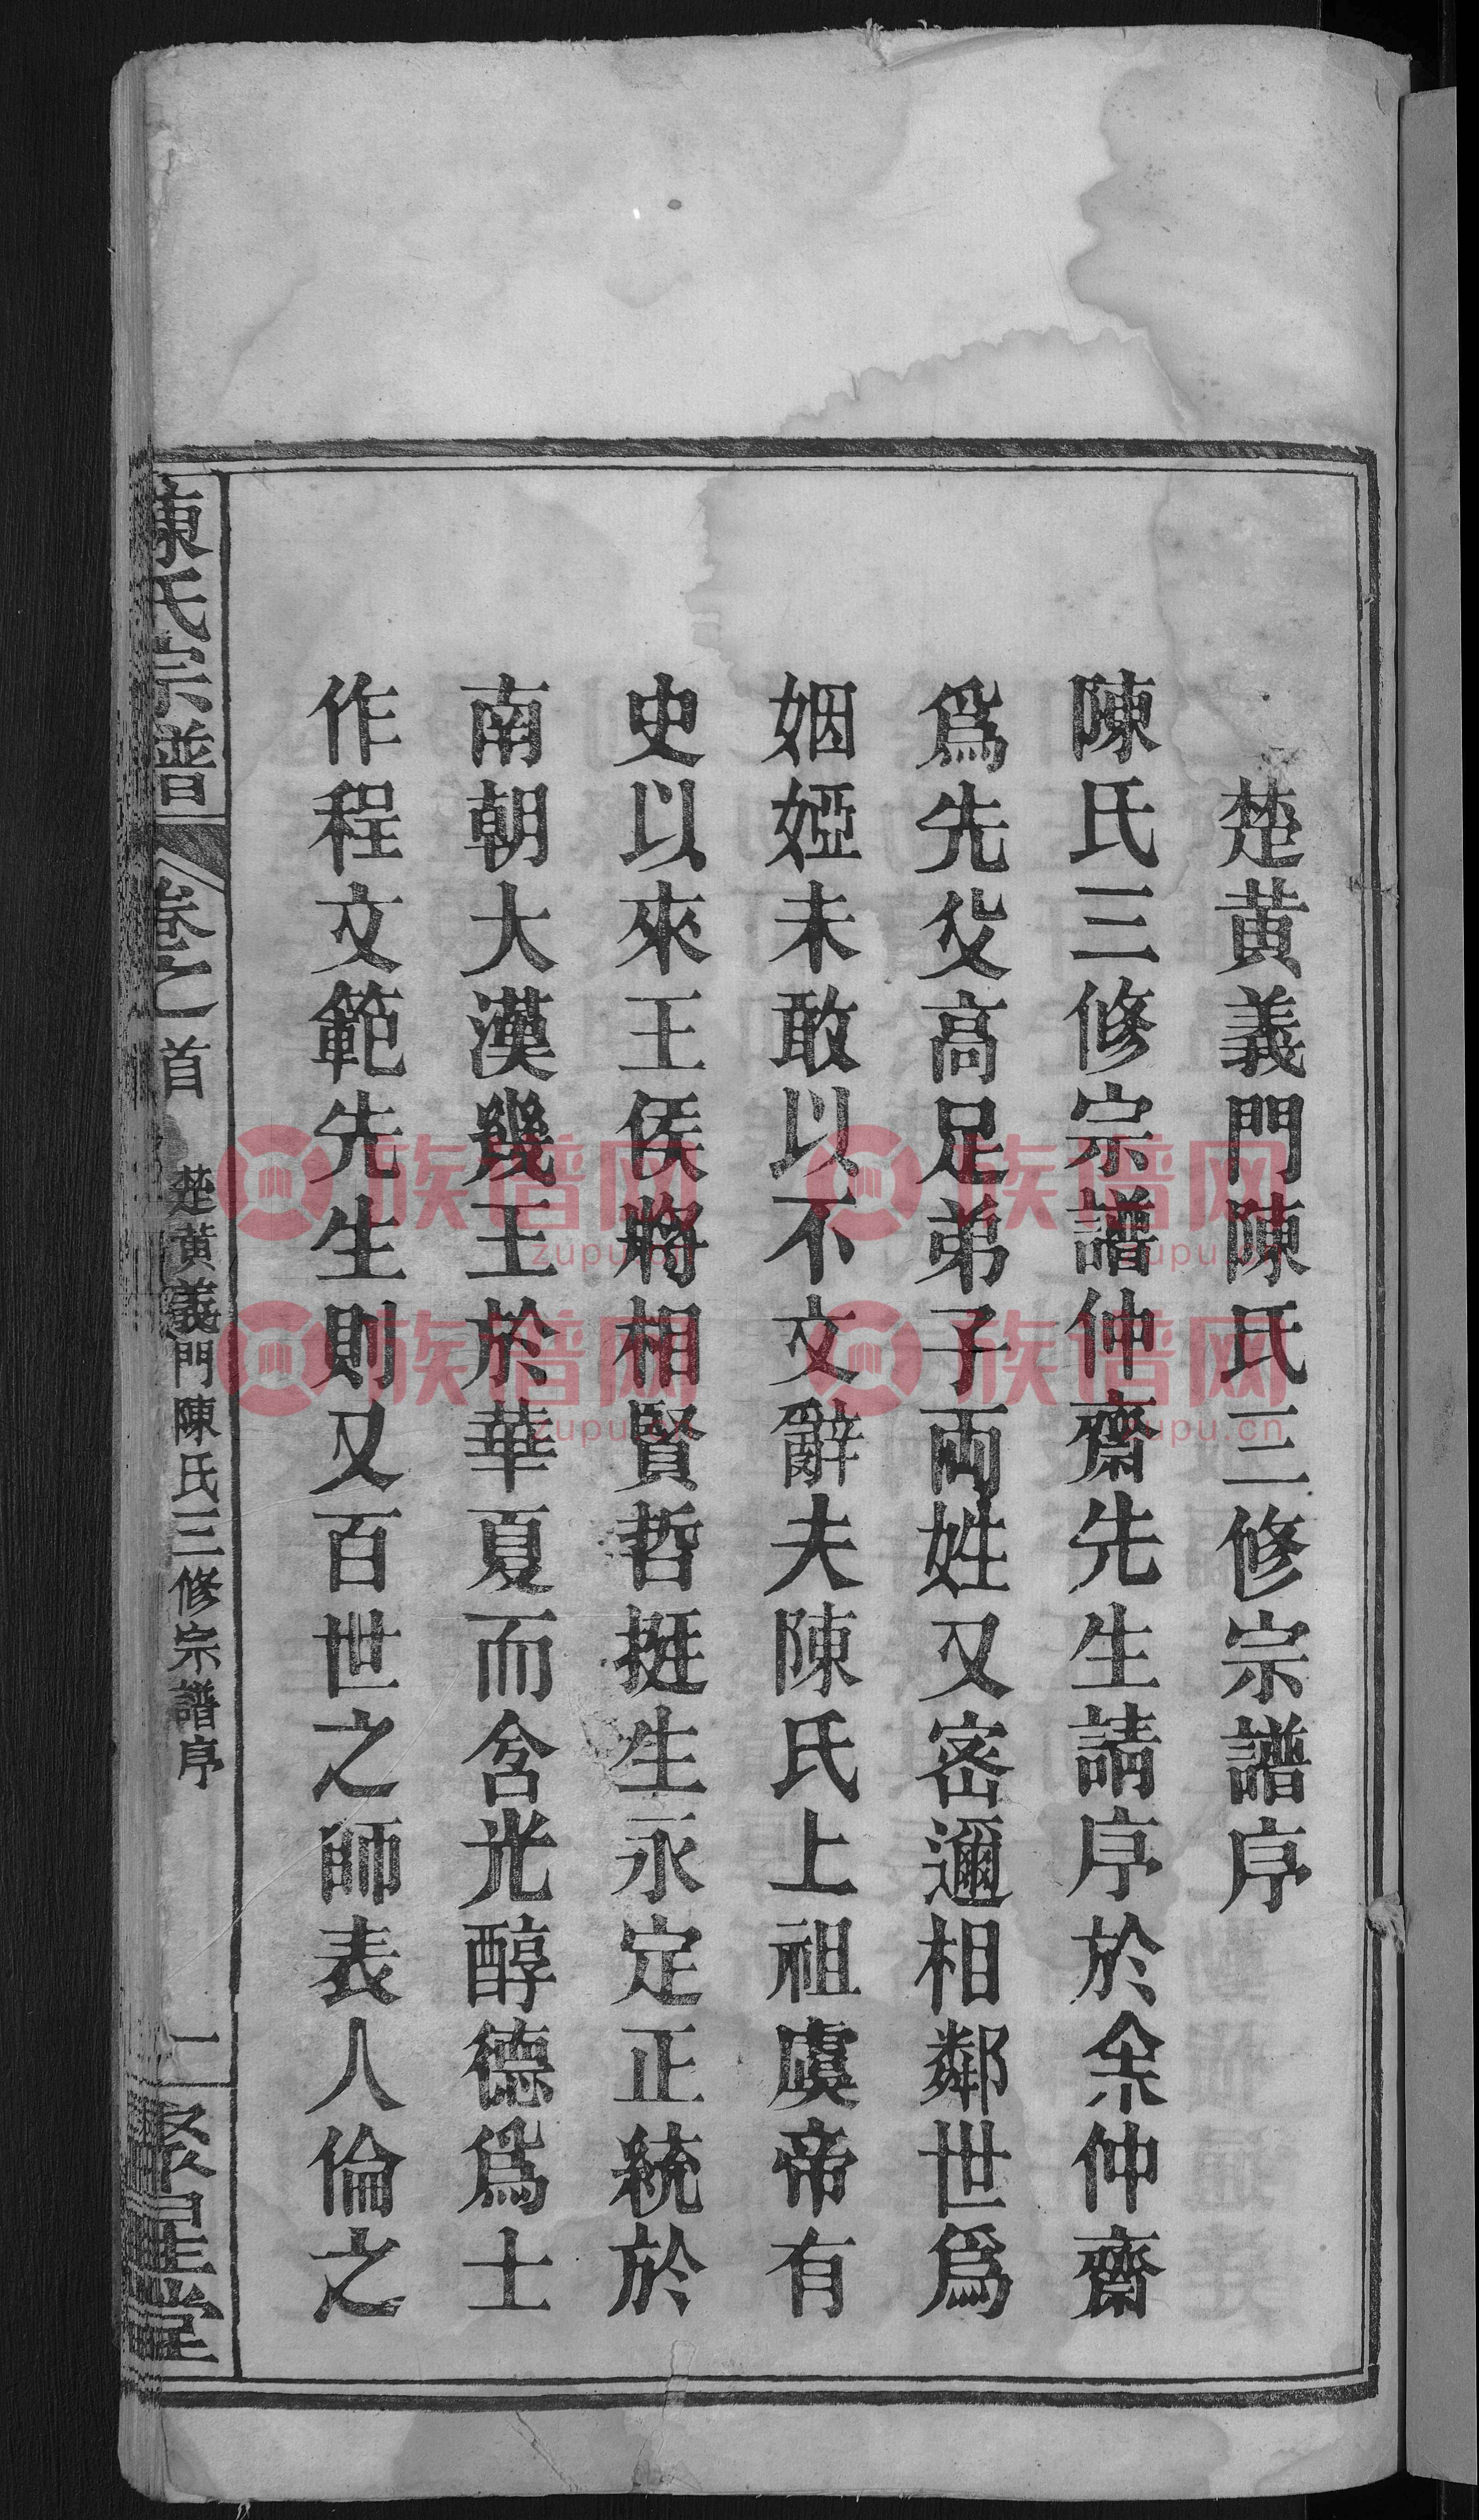 楚黄義門陳氏三修宗譜序
陳氏三修宗譜仲齋先生請序於余仲齋
爲先父高足弟子両姓又密邇相鄰世爲
姻婭未敢以不文辭夫陳氏上祖虞帝有
史以來王侯將相賢哲挺生永定正統於
南朝大漢幾王於華夏而含光醇德爲士
作程文範先生則又百世之師表人倫之
陳氏宗譜
卷之首
楚黄義門陳氏三修宗譜序
一
聚星堂
族谱网
zupu.cn
族谱网
zupu.cn
族谱网
zupu.cn
族谱网
zupu.cn